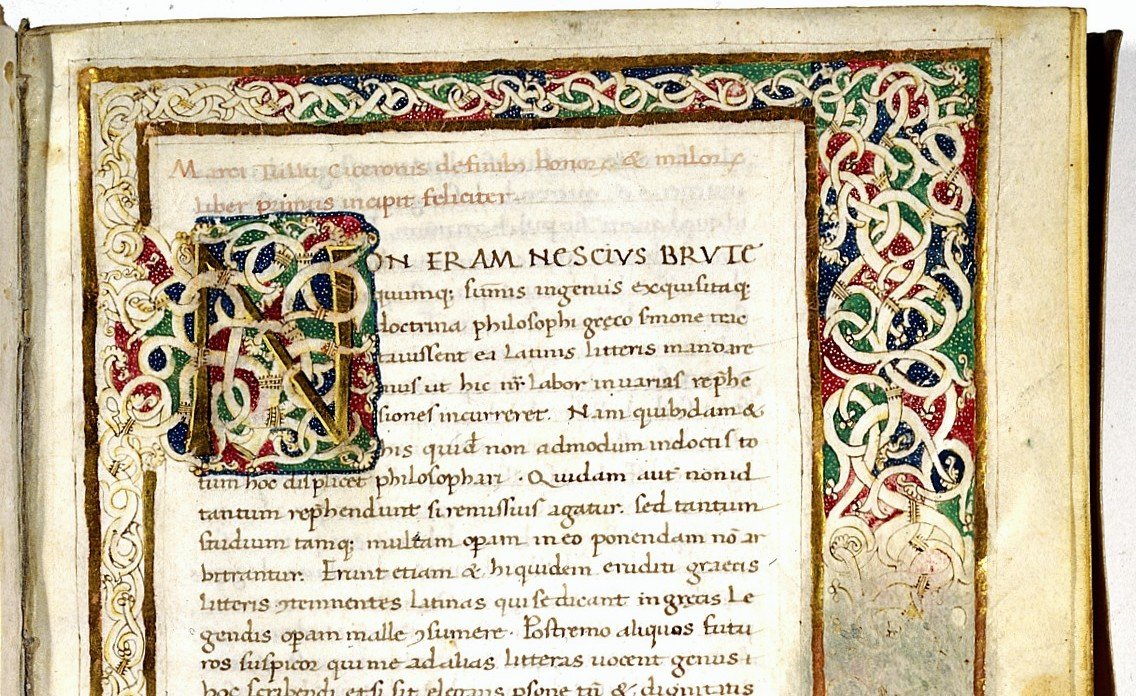 Marci Tullii Ciceronis de finibꝰ honoꝝ & maloꝝ
liber primus incipit feliciter
NON ERAM NESCIVS BRVTE
quumq; sūmis ingeniis exquisitaq;
doctrina philosophi gręco s̄mone trac
tauissent ea Latinis litteris mandare
mus ut hic nr̄ Labor in uarias rep̄he
siones incurreret. Nam quibꝰdam &
his quid̄ non admodum indoctis to
tum hoc displicet philosophari. Quidam aut̄ non id
tantum rep̄hendunt si remissius agatur. sed tantum
studium tamq; multam op̄am in eo ponendam nō ar
bitrantur. Erunt etiam & hi quidem eruditi graecis
litteris ꝯtemnentes Latinas qui se dicant in gręcis Le
gendis op̄am malle ꝯsumere. Postremo aliquos futu
ros suspicor qui me ad alias litteras uocent genus ī
hoc scribendi etsi sit elegans p̱sone tn̄ & dignitatis